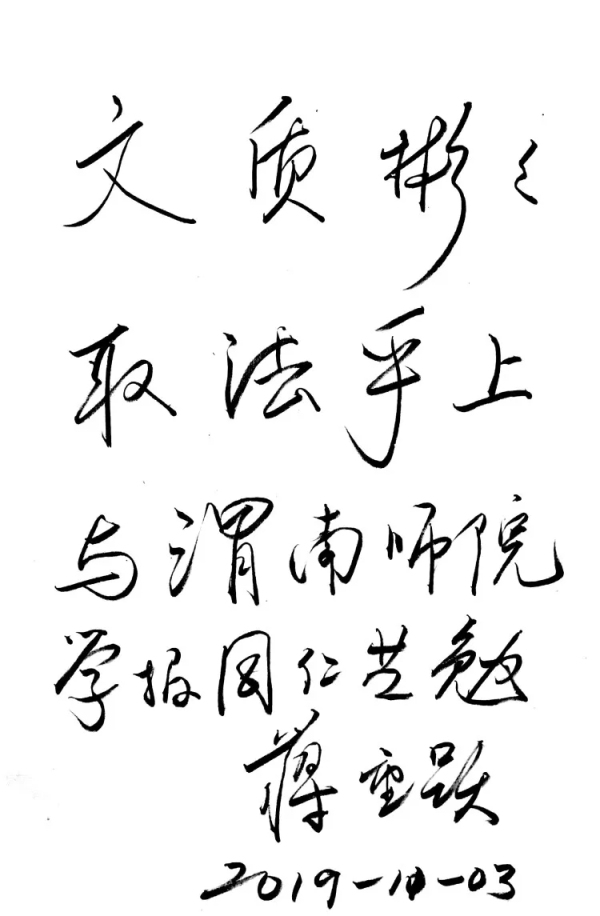 文质彬々
取法乎上
与渭南师院
学报同仁共勉
蒋重跃
2019-10-03